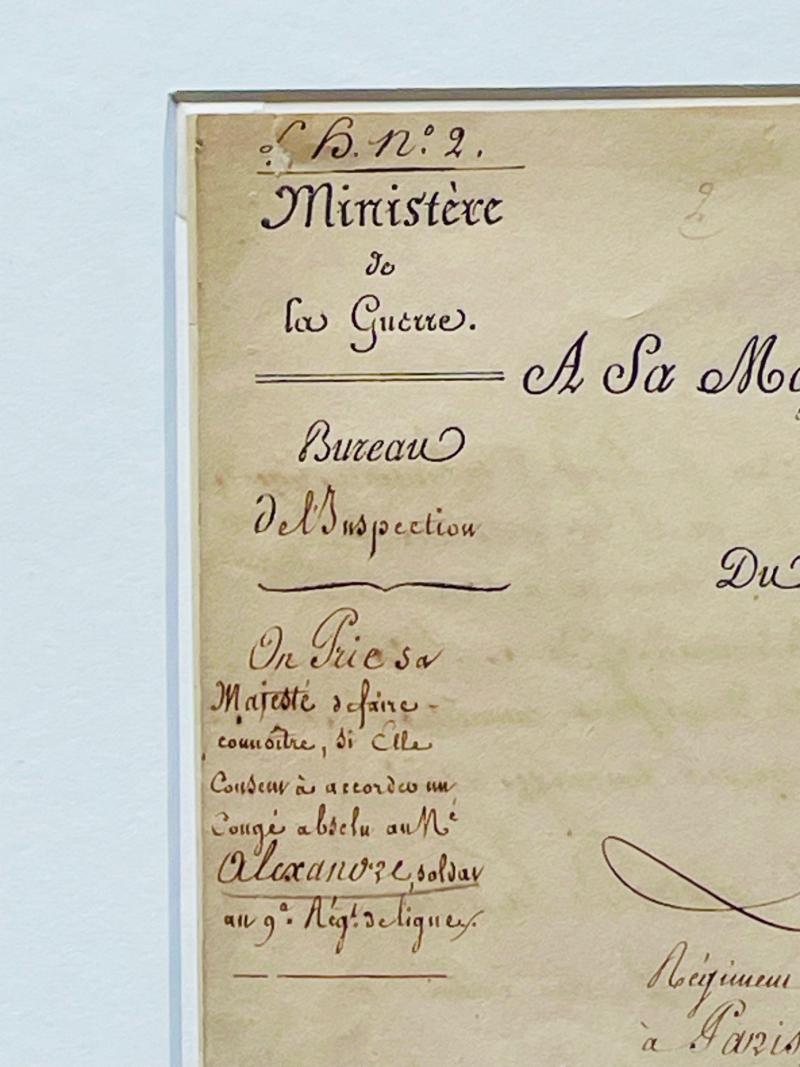 H. N.º 2.
2
Ministère
de
la Guerre.
A Sa Ma
Bureau
de l'Inspection
Du
On Prie sa
Majesté de faire
connoître, si Elle
Consent à accorder un
Congé absolu au N.é
Alexandre, soldat
au 9.e Rég.t de ligne.
Régiment
à Paris